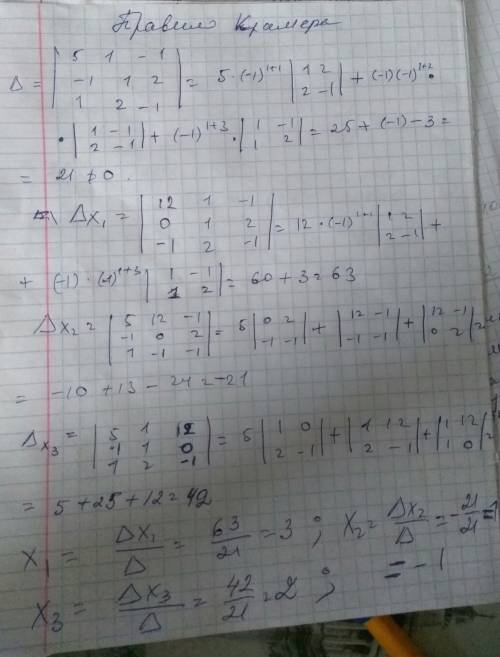 Правило Крамера
Δ = | 5 1 -1 |
| -1 1 2 | = 5·(-1)¹⁺¹ | 1 2 | + (-1)(-1)¹⁺²·
| 1 2 -1 | | 2 -1 |
· | 1 -1 | + (-1)¹⁺³ · | 1 -1 | = 25 + (-1) - 3 =
| 2 -1 | | 1 2 |
= 21 ≠ 0.
Δx₁ = | 12 1 -1 |
| 0 1 2 | = 12·(-1)¹⁺¹ | 1 2 | +
| -1 2 -1 | | 2 -1 |
+ (-1)·(-1)¹⁺³ | 1 -1 | = 60 + 3 = 63
| 1 2 |
Δx₂ = | 5 12 -1 |
| -1 0 2 | = 5 | 0 2 | + | 12 -1 | + | 12 -1 | =
| 1 -1 -1 | | -1 -1 | | -1 -1 | | 0 2 |
= -10 + 13 - 24 = -21
Δx₃ = | 5 1 12 |
| -1 1 0 | = 5 | 1 0 | + | 1 12 | + | 1 12 | =
| 1 2 -1 | | 2 -1 | | 2 -1 | | 1 0 |
= 5 + 25 + 12 = 42
x₁ = Δx₁/Δ = 63/21 = 3 ; x₂ = Δx₂/Δ = -21/21 =
= -1
x₃ = Δx₃/Δ = 42/21 = 2 ;